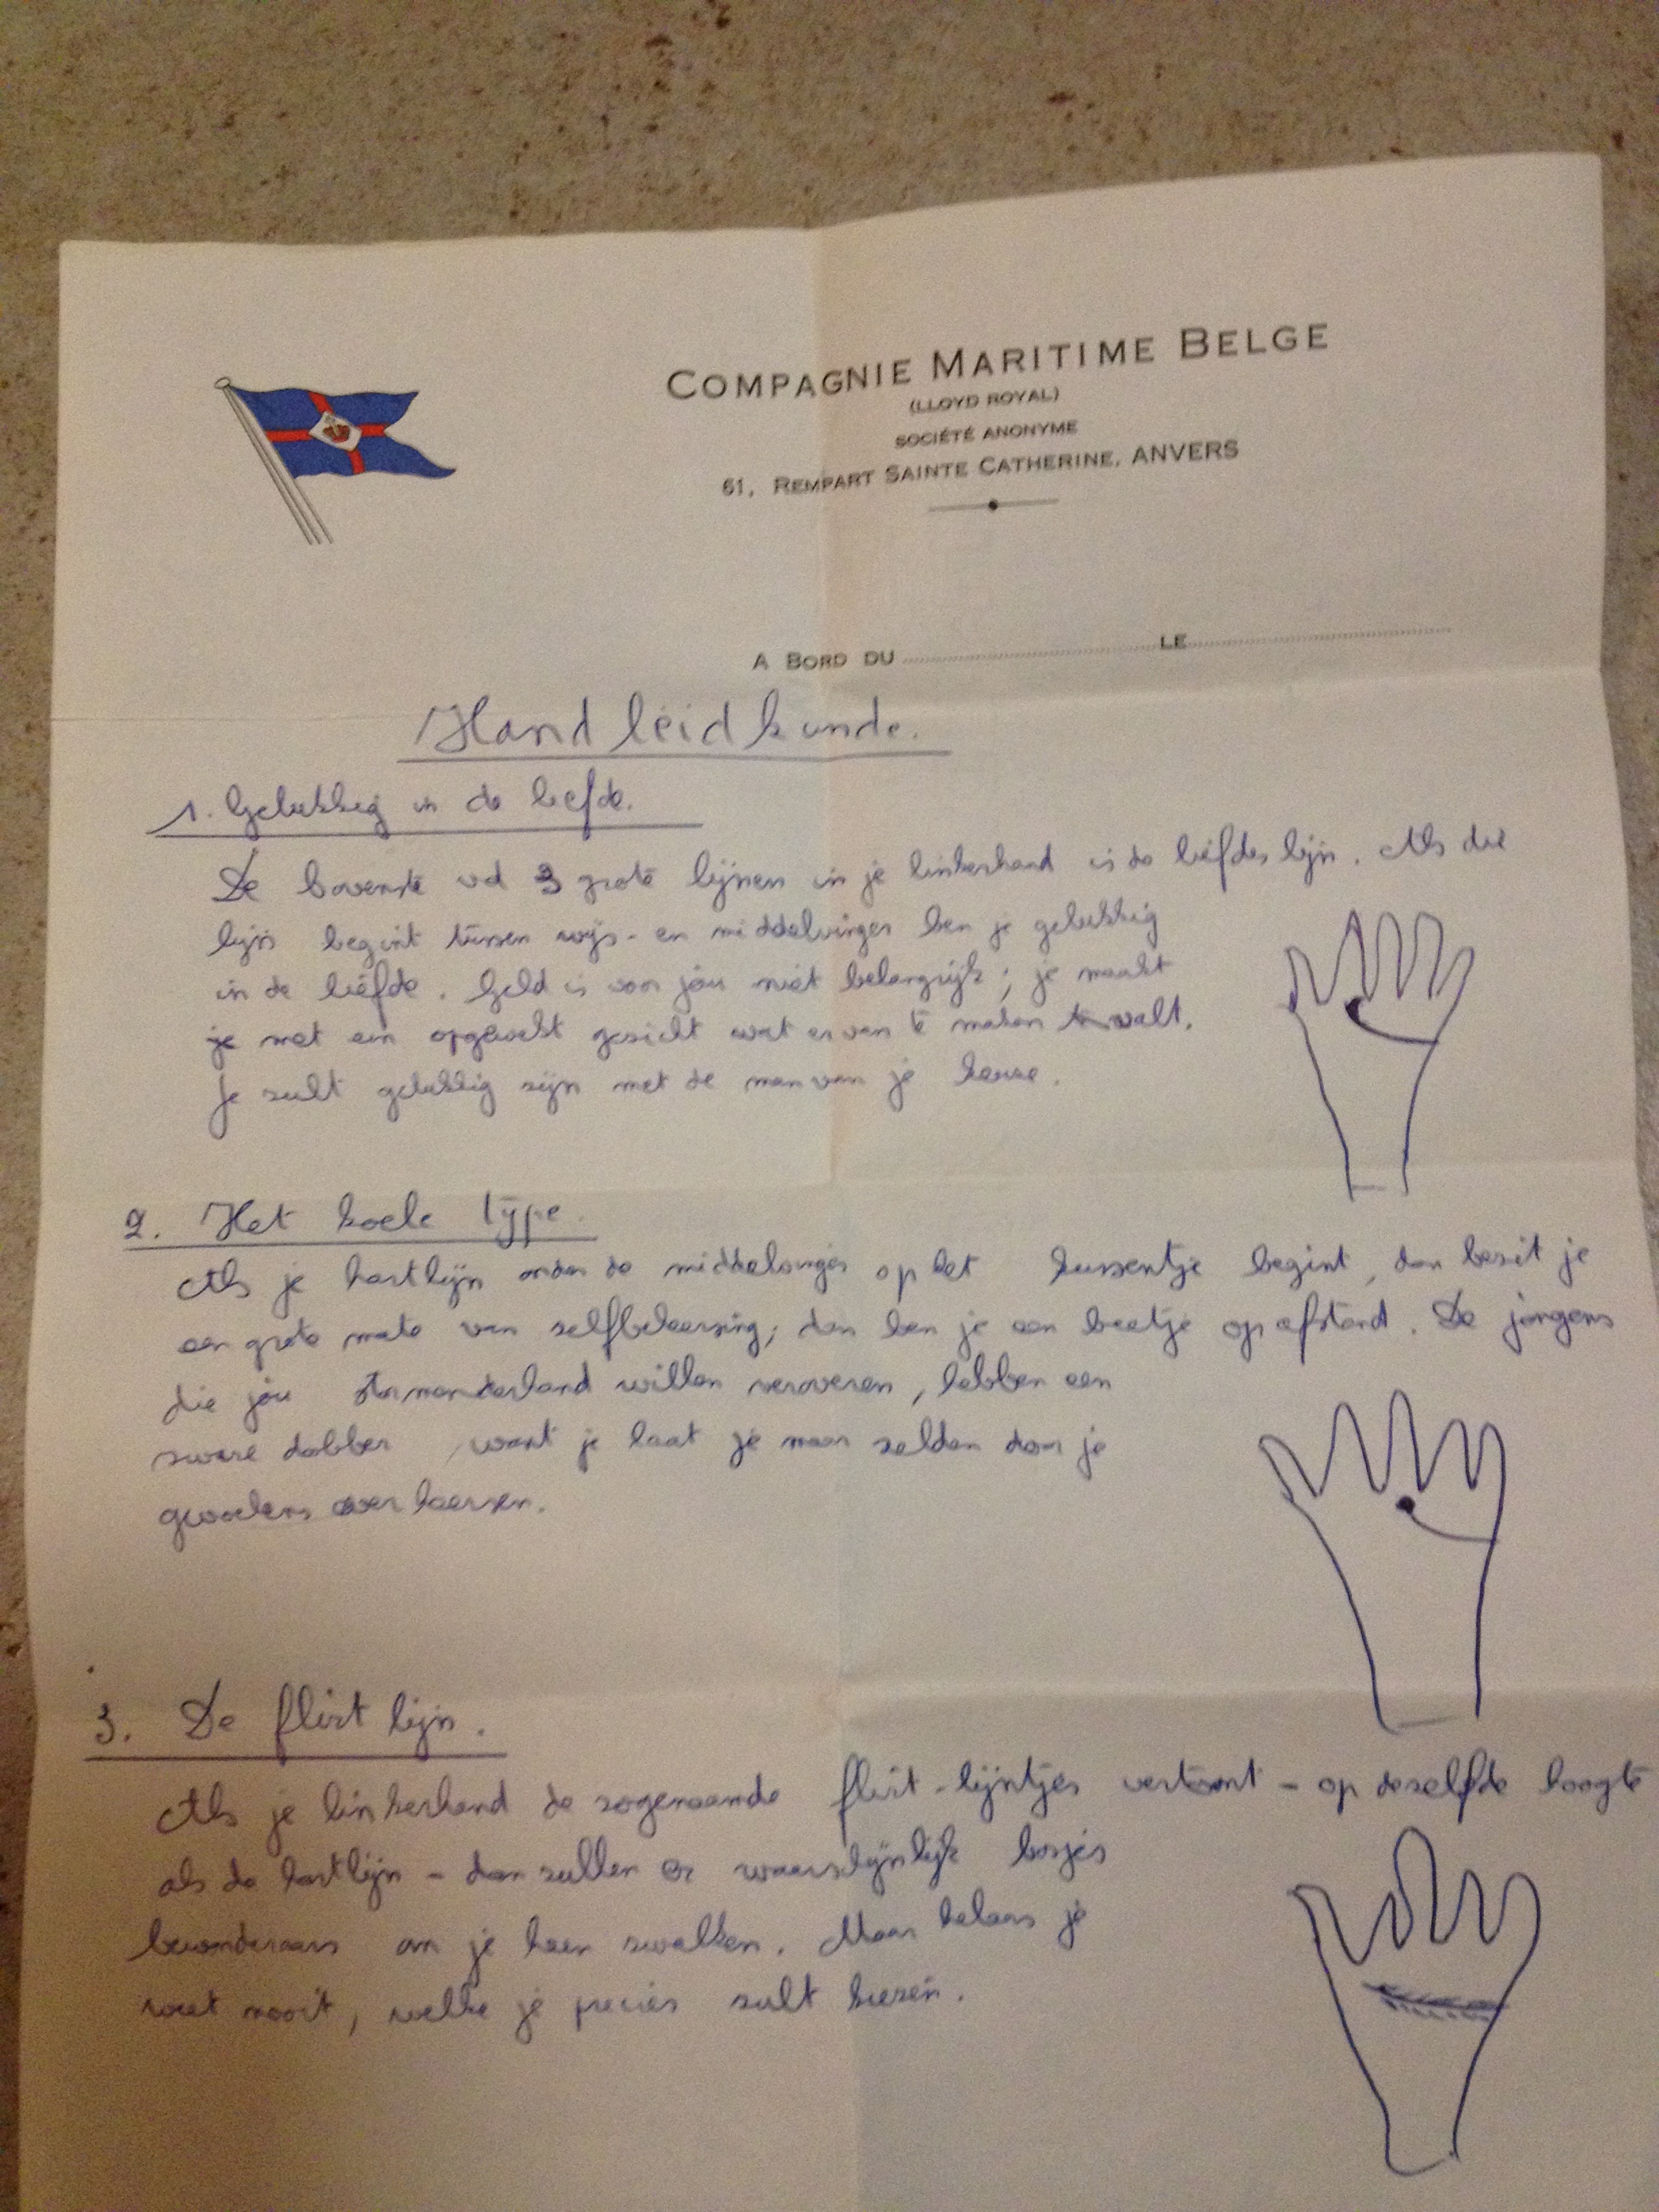 COMPAGNIE MARITIME BELGE
(LLOYD ROYAL)
SOCIÉTÉ ANONYME
61, REMPART SAINTE CATHERINE, ANVERS
A BORD DU LE
Handleidkunde.
1. Gelukkig in de liefde.
De bovenste vd 3 grote lijnen in je linkerhand is de liefdeslijn. Als die
lijn begint tussen wijs- en middelvinger ben je gelukkig
in de liefde. Geld is voor jou niet belangrijk; je maakt
je met een opgewekt gezicht wat ervan te maken valt.
Je zult gelukkig zijn met de man van je keuze.
2. Het koele type.
Als je hartlijn onder de middelvinger op het kussentje begint, dan bezit je
een grote mate van zelfbeheersing; dan ben je een beetje op afstand. De jongens
die jou stormenderhand willen veroveren, hebben een
zware dobber, want je laat je maar zelden door je
gevoelens overheersen.
3. De flirt lijn.
Als je linkerhand de zogenaamde flirt-lijntjes vertoont - op dezelfde hoogte
als de hartlijn - dan zullen er waarschijnlijk bosjes
bewonderaars om je heen zwermen. Maar helaas je
weet nooit, welke je precies zult kiezen.